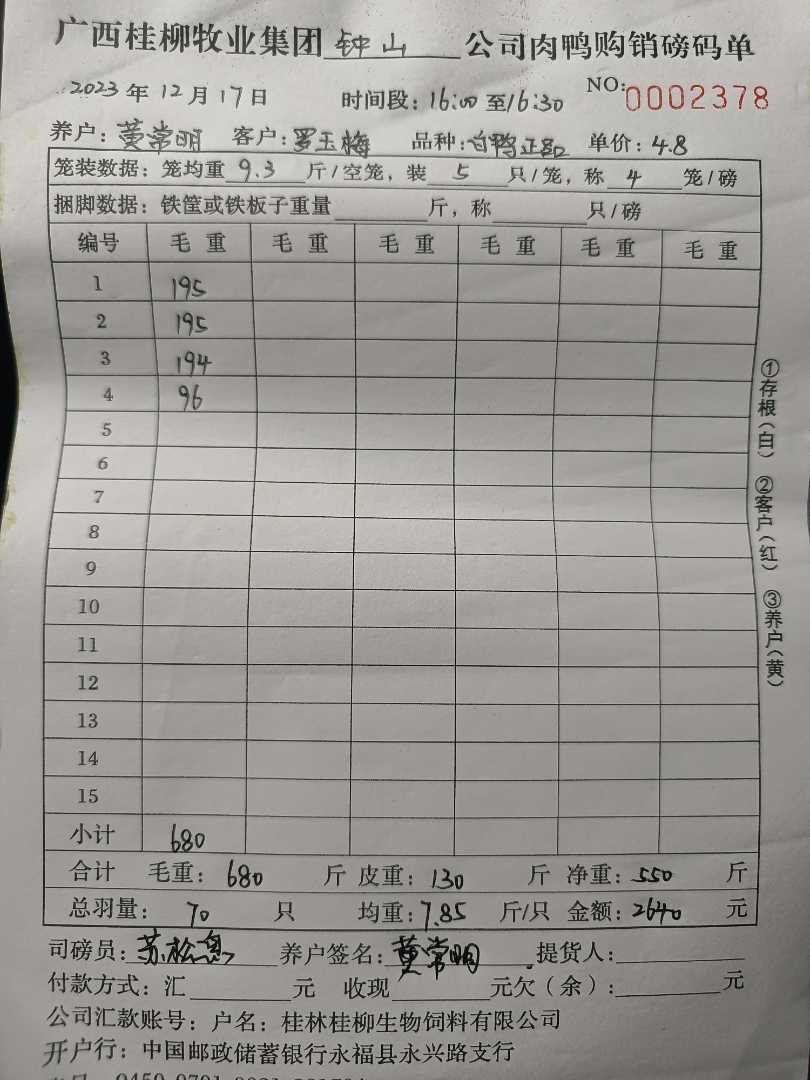 广西桂柳牧业集团 钟山 公司肉鸭购销磅码单
2023年12月17日 时间段:16:00至16:30 NO:0002378
养户:黄常明 客户:罗玉梅 品种:白鸭正品 单价:4.8
笼装数据:笼均重 9.3 斤/空笼,装 5 只/笼,称 4 笼/磅
捆脚数据:铁筐或铁板子重量 斤,称 只/磅
编号 毛重 毛重 毛重 毛重 毛重 毛重
1 195
2 195
3 194
4 96
5
6
7
8
9
10
11
12
13
14
15
小计 680
合计 毛重:680 斤 皮重:130 斤 净重:550 斤
总羽量:70 只 均重:7.85 斤/只 金额:2640 元
司磅员: 养户签名:黄常明 提货人:
付款方式:汇 元 收现 元欠(余): 元
公司汇款账号:户名:桂林桂柳生物饲料有限公司
开户行:中国邮政储蓄银行永福县永兴路支行
①存根(白) ②客户(红) ③养户(黄)